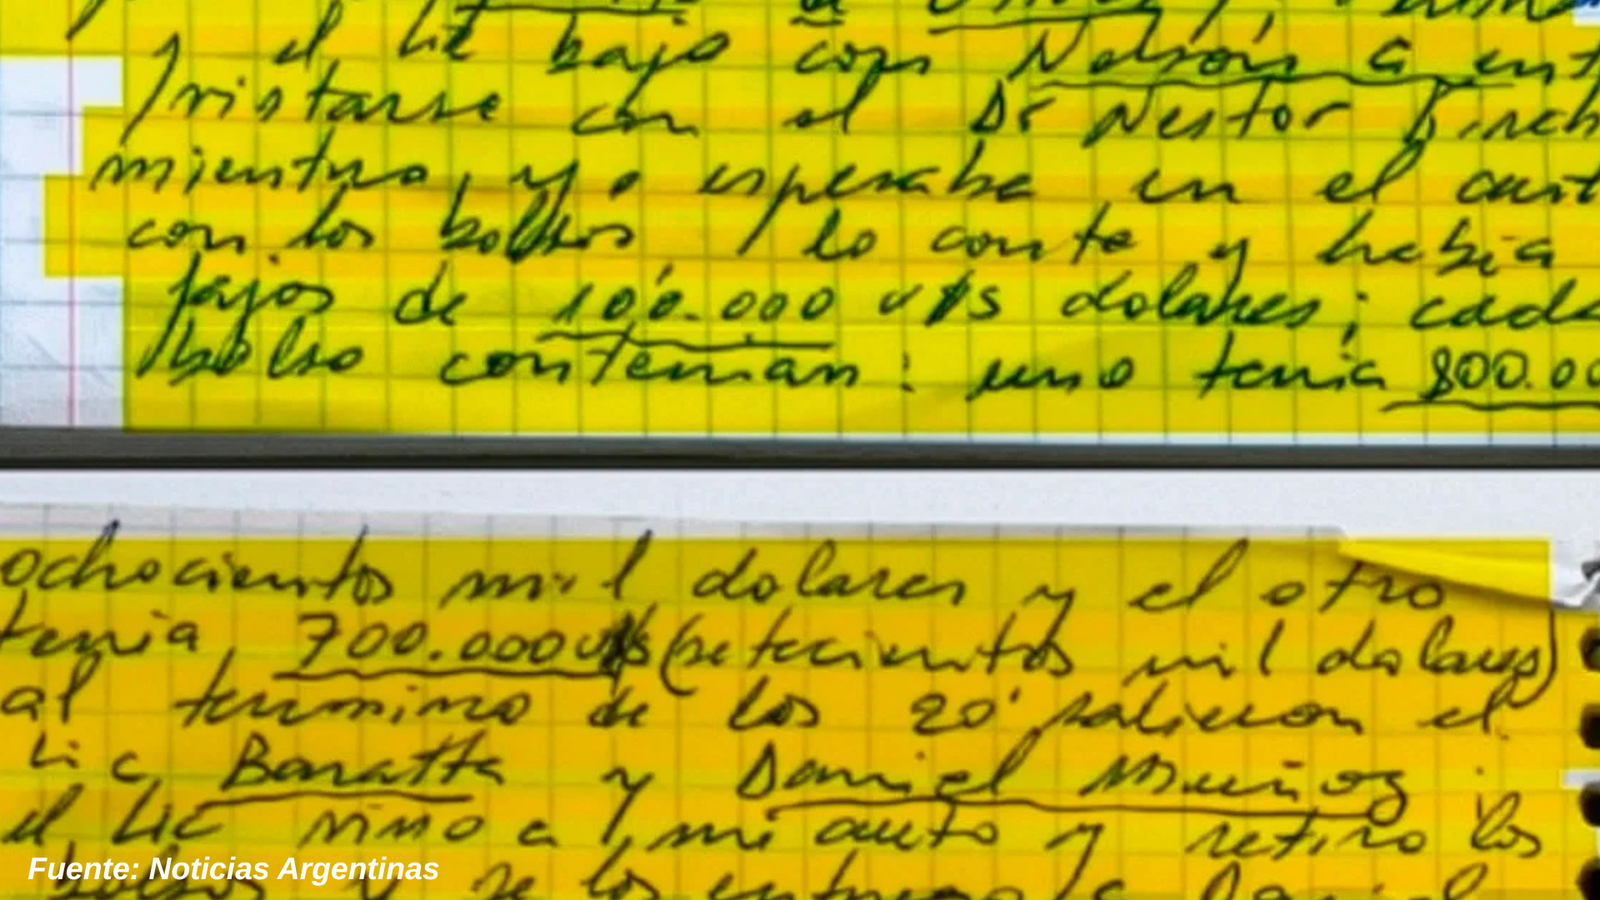 y el Lic bajo con Nelson a ent
vistarse con el Dr Nestor
mientras, yo esperaba en el
con los bolsos, lo conte y habia
fajos de 100.000 U$S dolares; cada
bolso contenian: uno tenia 800.00
ochocientos mil dolares y el otro
tenia 700.000 U$S (setecientos mil dolares)
al termino de los 20' salieron el
Lic Baratta y Daniel Muñoz;
el Lic vino a mi auto y retiro los
bolsos y se los entrego a Daniel
Fuente: Noticias Argentinas